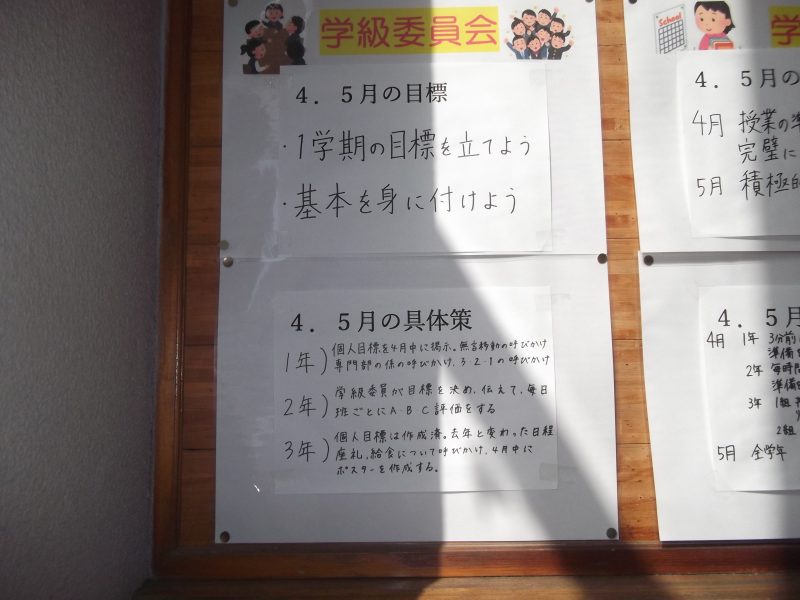 学級委員会
4．5月の目標
・1学期の目標を立てよう
・基本を身に付けよう
4．5月の具体策
1年）個人目標を4月中に掲示。無言移動の呼びかけ
専門部の係の呼びかけ、3・2・1の呼びかけ
2年）学級委員が目標を決め、伝えて、毎日
班ごとにA・B・C評価をする
3年）個人目標は作成済。去年と変わった日程
座礼、給食について呼びかけ、4月中に
ポスターを作成する。
School
学
4．5月の
4月 授業の準
完璧に
5月 積極的
4．5月
4月 1年 3分前
準備
2年 毎時間
準備
3年 1組
2組
5月 全学年